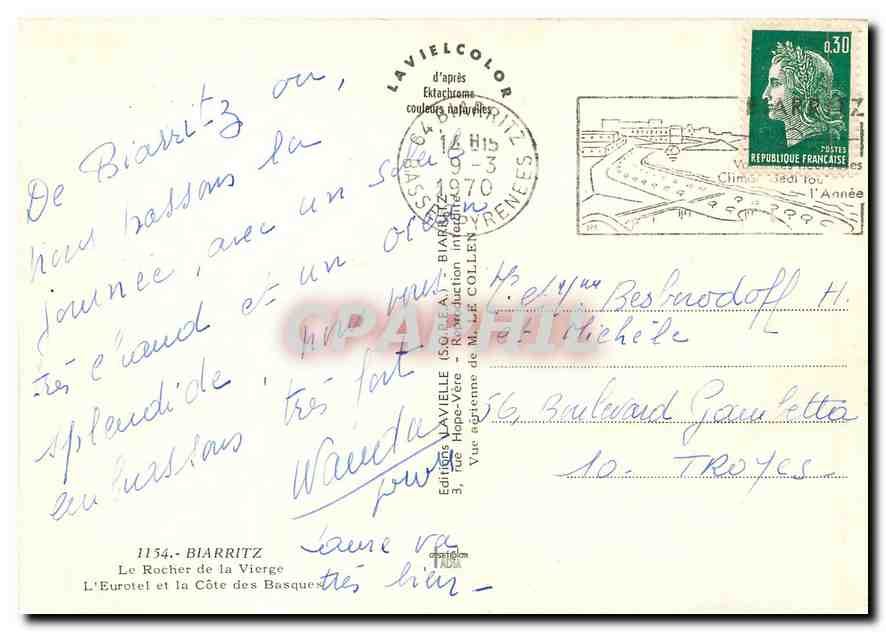 LAVIELCOLOR
d'après
Ektachrome
couleurs naturelles
0,30
POSTES
REPUBLIQUE FRANÇAISE
64 BIARRITZ
14 H15
9-3
1970
BASSES PYRENEES
BIARRITZ
l'Année
De Biarritz ou,
nous passons la
journée, avec un soleil
très chaud et un océan
splendide, nous vous
embrassons très fort
Wanda
Laure va
très bien_
Mr et Mme Besborodoff H.
et Michèle
56, Boulevard Gambetta
10. TROYES
Editions LAVIELLE (S.O.R.E.A.) BIARRITZ
3, rue Hope-Vère - Reproduction interdite
Vue aérienne de M. LE COLLEN
1154.- BIARRITZ
Le Rocher de la Vierge
L'Eurotel et la Côte des Basques
CPAPHIL